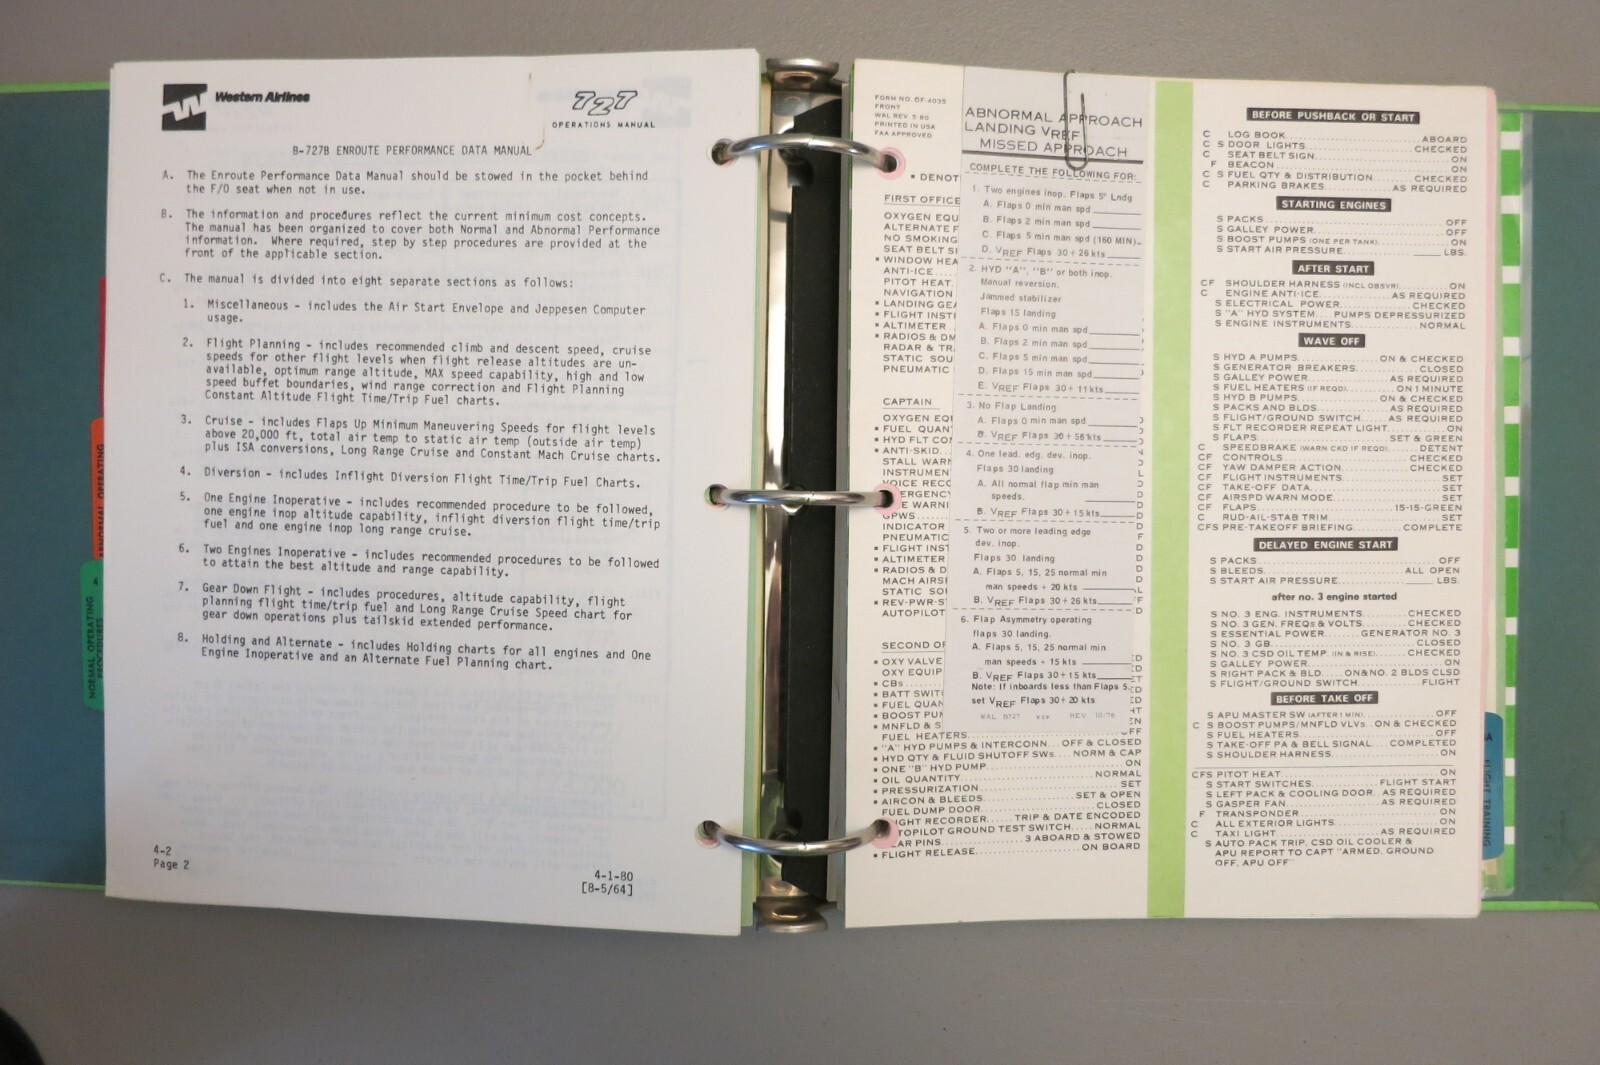 Western Airlines
727
OPERATIONS MANUAL
B-727B ENROUTE PERFORMANCE DATA MANUAL
A. The Enroute Performance Data Manual should be stowed in the pocket behind
the F/O seat when not in use.
B. The information and procedures reflect the current minimum cost concepts.
The manual has been organized to cover both Normal and Abnormal Performance
information. Where required, step by step procedures are provided at the
front of the applicable section.
C. The manual is divided into eight separate sections as follows:
1. Miscellaneous - includes the Air Start Envelope and Jeppesen Computer
usage.
2. Flight Planning - includes recommended climb and descent speed, cruise
speeds for other flight levels when flight release altitudes are un-
available, optimum range altitude, MAX speed capability, high and low
speed buffet boundaries, wind range correction and Flight Planning
Constant Altitude Flight Time/Trip Fuel charts.
3. Cruise - includes Flaps Up Minimum Maneuvering Speeds for flight levels
above 20,000 ft, total air temp to static air temp (outside air temp)
plus ISA conversions, Long Range Cruise and Constant Mach Cruise charts.
4. Diversion - includes Inflight Diversion Flight Time/Trip Fuel Charts.
5. One Engine Inoperative - includes recommended procedure to be followed,
one engine inop altitude capability, inflight diversion flight time/trip
fuel and one engine inop long range cruise.
6. Two Engines Inoperative - includes recommended procedures to be followed
to attain the best altitude and range capability.
7. Gear Down Flight - includes procedures, altitude capability, flight
planning flight time/trip fuel and Long Range Cruise Speed chart for
gear down operations plus tailskid extended performance.
8. Holding and Alternate - includes Holding charts for all engines and One
Engine Inoperative and an Alternate Fuel Planning chart.
4-2
Page 2
4-1-80
[8-5/64]
NORMAL OPERATING
PROCEDURES
FORM NO. OF-4035
FRONT
WAL REV. 5-80
PRINTED IN USA
FAA APPROVED
• DENOT
FIRST OFFICE
OXYGEN EQU
ALTERNATE F
NO SMOKING
SEAT BELT SI
• WINDOW HEA
ANTI-ICE
PITOT HEAT
NAVIGATION
• LANDING GEA
• FLIGHT INST
• ALTIMETER
• RADIOS & DM
RADAR & TR
STATIC SOU
PNEUMATIC
CAPTAIN
OXYGEN EQU
• FUEL QUAN
• HYD FLT CO
• ANTI-SKID
STALL WARN
INSTRUMEN
VOICE REC
ERGENCY
E WARNI
GPWS
INDICATOR
PNEUMATIC
• FLIGHT INST
• ALTIMETER
• RADIOS & D
MACH AIRS
STATIC SO
• REV-PWR-S
AUTOPILOT
SECOND OF
• OXY VALVE
OXY EQUIP
• CBs
• BATT SWIT
• FUEL QUAN
• BOOST PU
• MNFLD & S
FUEL HEATERS
• "A" HYD PUMPS & INTERCONN OFF & CLOSED
• HYD QTY & FLUID SHUTOFF SWs NORM & CAP
• ONE "B" HYD PUMP ON
• OIL QUANTITY NORMAL
• PRESSURIZATION SET
• AIRCON & BLEEDS SET & OPEN
FUEL DUMP DOOR CLOSED
IGHT RECORDER TRIP & DATE ENCODED
TOPILOT GROUND TEST SWITCH NORMAL
AR PINS 3 ABOARD & STOWED
• FLIGHT RELEASE ON BOARD
ABNORMAL APPROACH
LANDING VREF
MISSED APPROACH
COMPLETE THE FOLLOWING FOR:
1. Two engines inop. Flaps 5° Lndg
A. Flaps 0 min man spd
B. Flaps 2 min man spd
C. Flaps 5 min man spd (160 MIN)
D. VREF Flaps 30 + 26 kts
2. HYD "A", "B" or both inop.
Manual reversion.
Jammed stabilizer
Flaps 15 landing
A. Flaps 0 min man spd
B. Flaps 2 min man spd
C. Flaps 5 min man spd
D. Flaps 15 min man spd
E. VREF Flaps 30 + 11 kts
3. No Flap Landing
A. Flaps 0 min man spd
B. VREF Flaps 30 + 56 kts
4. One lead. edg. dev. inop.
Flaps 30 landing
A. All normal flap min man
speeds.
B. VREF Flaps 30 + 15 kts
5. Two or more leading edge
dev. inop.
Flaps 30 landing
A. Flaps 5, 15, 25 normal min
man speeds + 20 kts
B. VREF Flaps 30 + 26 kts
6. Flap Asymmetry operating
flaps 30 landing.
A. Flaps 5, 15, 25 normal min
man speeds + 15 kts
B. VREF Flaps 30 + 15 kts
Note: If inboards less than Flaps 5,
set VREF Flaps 30 + 20 kts
WAL B727 REV 10/76
BEFORE PUSHBACK OR START
C LOG BOOK ABOARD
C S DOOR LIGHTS CHECKED
C SEAT BELT SIGN ON
F BEACON ON
C S FUEL QTY & DISTRIBUTION CHECKED
C PARKING BRAKES AS REQUIRED
STARTING ENGINES
S PACKS OFF
S GALLEY POWER OFF
S BOOST PUMPS (ONE PER TANK) ON
S START AIR PRESSURE LBS.
AFTER START
CF SHOULDER HARNESS (INCL OBSVR) ON
C ENGINE ANTI-ICE AS REQUIRED
S ELECTRICAL POWER CHECKED
S "A" HYD SYSTEM PUMPS DEPRESSURIZED
S ENGINE INSTRUMENTS NORMAL
WAVE OFF
S HYD A PUMPS ON & CHECKED
S GENERATOR BREAKERS CLOSED
S GALLEY POWER AS REQUIRED
S FUEL HEATERS (IF REQD) ON 1 MINUTE
S HYD B PUMPS ON & CHECKED
S PACKS AND BLDS AS REQUIRED
S FLIGHT/GROUND SWITCH AS REQUIRED
S FLT RECORDER REPEAT LIGHT ON
S FLAPS SET & GREEN
C SPEEDBRAKE (WARN CKD IF REQD) DETENT
CF CONTROLS CHECKED
CF YAW DAMPER ACTION CHECKED
CF FLIGHT INSTRUMENTS SET
CF TAKE-OFF DATA SET
CF AIRSPD WARN MODE SET
CF FLAPS 15-15-GREEN
C RUD-AIL-STAB TRIM SET
CFS PRE-TAKEOFF BRIEFING COMPLETE
DELAYED ENGINE START
S PACKS OFF
S BLEEDS ALL OPEN
S START AIR PRESSURE LBS.
after no. 3 engine started
S NO. 3 ENG. INSTRUMENTS CHECKED
S NO. 3 GEN. FREQs & VOLTS CHECKED
S ESSENTIAL POWER GENERATOR NO. 3
S NO. 3 GB CLOSED
S NO. 3 CSD OIL TEMP. (IN & RISE) CHECKED
S GALLEY POWER ON
S RIGHT PACK & BLD ON & NO. 2 BLDS CLSD
S FLIGHT/GROUND SWITCH FLIGHT
BEFORE TAKE OFF
S APU MASTER SW (AFTER 1 MIN) OFF
C S BOOST PUMPS/MNFLD VLVs ON & CHECKED
S FUEL HEATERS OFF
S TAKE-OFF PA & BELL SIGNAL COMPLETED
S SHOULDER HARNESS ON
CFS PITOT HEAT ON
S START SWITCHES FLIGHT START
S LEFT PACK & COOLING DOOR AS REQUIRED
S GASPER FAN AS REQUIRED
F TRANSPONDER ON
C ALL EXTERIOR LIGHTS ON
C TAXI LIGHT AS REQUIRED
S AUTO PACK TRIP, CSD OIL COOLER &
APU REPORT TO CAPT "ARMED, GROUND
OFF, APU OFF"
FLIGHT TRAINING